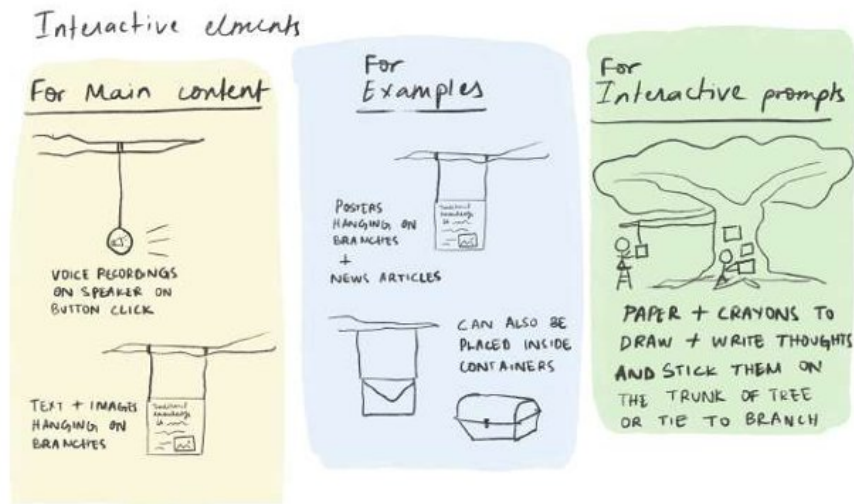 Interactive elments
For Main content
VOICE RECORDINGS
ON SPEAKER ON
BUTTON CLICK
TEXT + IMAGES
HANGING ON
BRANCHES
Traditional
knowledge
is
For
Examples
POSTERS
HANGING ON
BRANCHES
+
NEWS ARTICLES
Traditional
knowledge
is
CAN ALSO BE
PLACED INSIDE
CONTAINERS
For
Interactive prompts
PAPER + CRAYONS TO
DRAW + WRITE THOUGHTS
AND STICK THEM ON
THE TRUNK OF TREE
OR TIE TO BRANCH